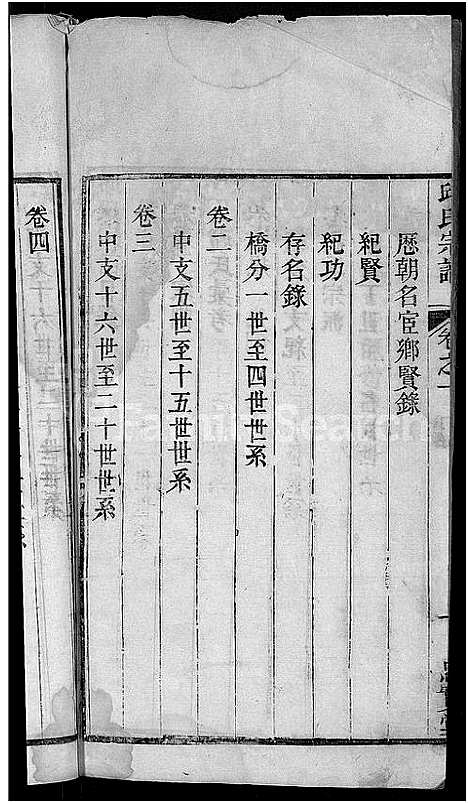 邱氏宗譜
卷之一
歷朝名宦鄉賢錄
紀賢
紀功
存名錄
橋分一世至四世世系
卷二
中支五世至十五世世系
卷三
中支十六世至二十世世系
卷四